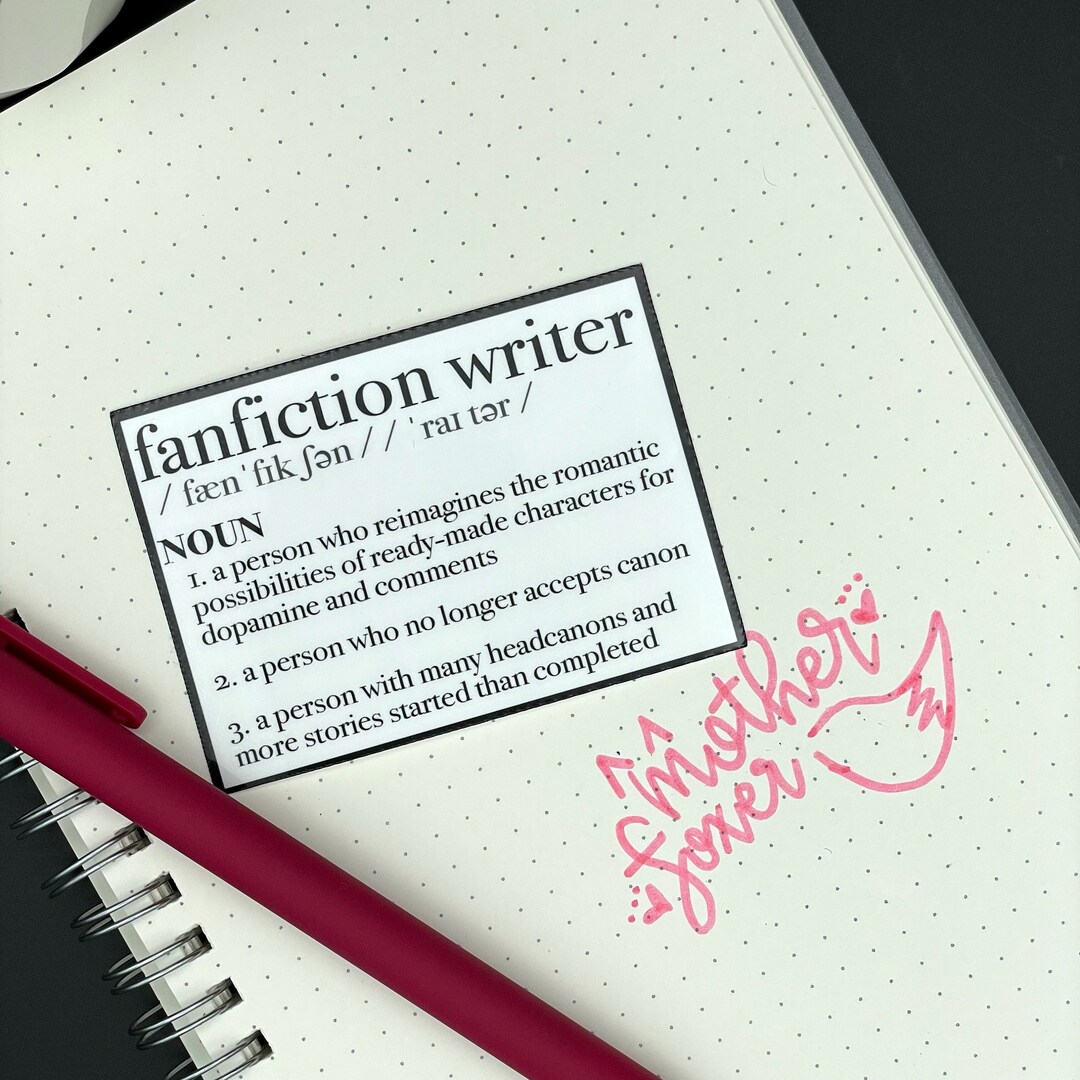 fanfiction writer
/ fæn ˈfɪk ʃən / / ˈ raɪ tər /
NOUN
1. a person who reimagines the romantic
possibilities of ready-made characters for
dopamine and comments
2. a person who no longer accepts canon
3. a person with many headcanons and
more stories started than completed
mother
foxer